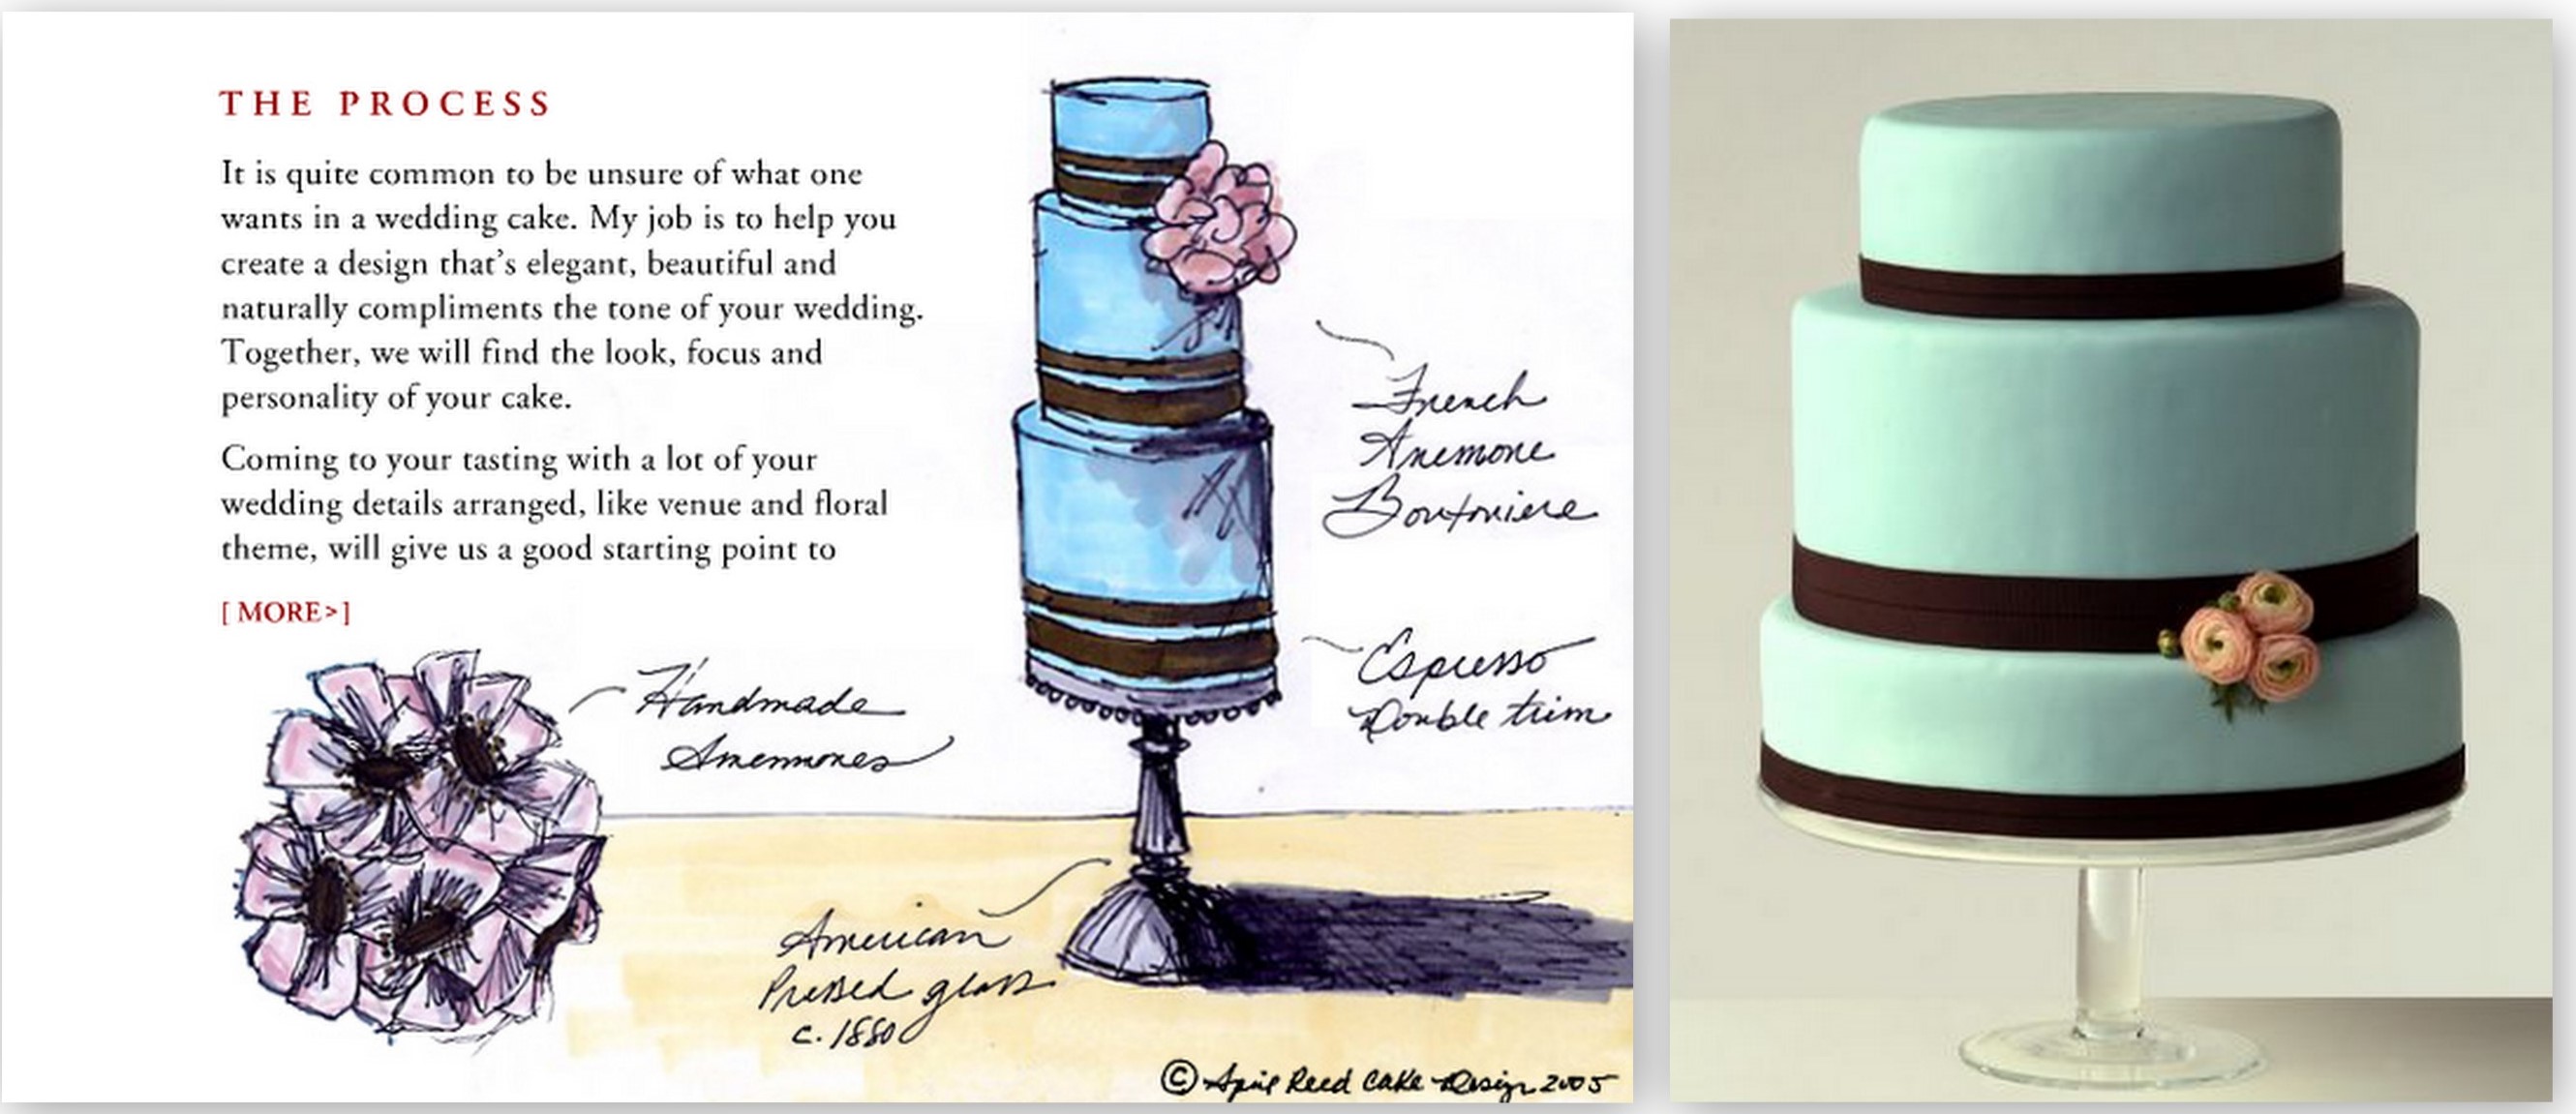 THE PROCESS
It is quite common to be unsure of what one
wants in a wedding cake. My job is to help you
create a design that's elegant, beautiful and
naturally compliments the tone of your wedding.
Together, we will find the look, focus and
personality of your cake.
Coming to your tasting with a lot of your
wedding details arranged, like venue and floral
theme, will give us a good starting point to
[ MORE> ]
French
Anemone
Boutoniere
Espresso
Double trim
Handmade
Anemmones
American
Pressed glass
c. 1880
© April Reed Cake Design 2005